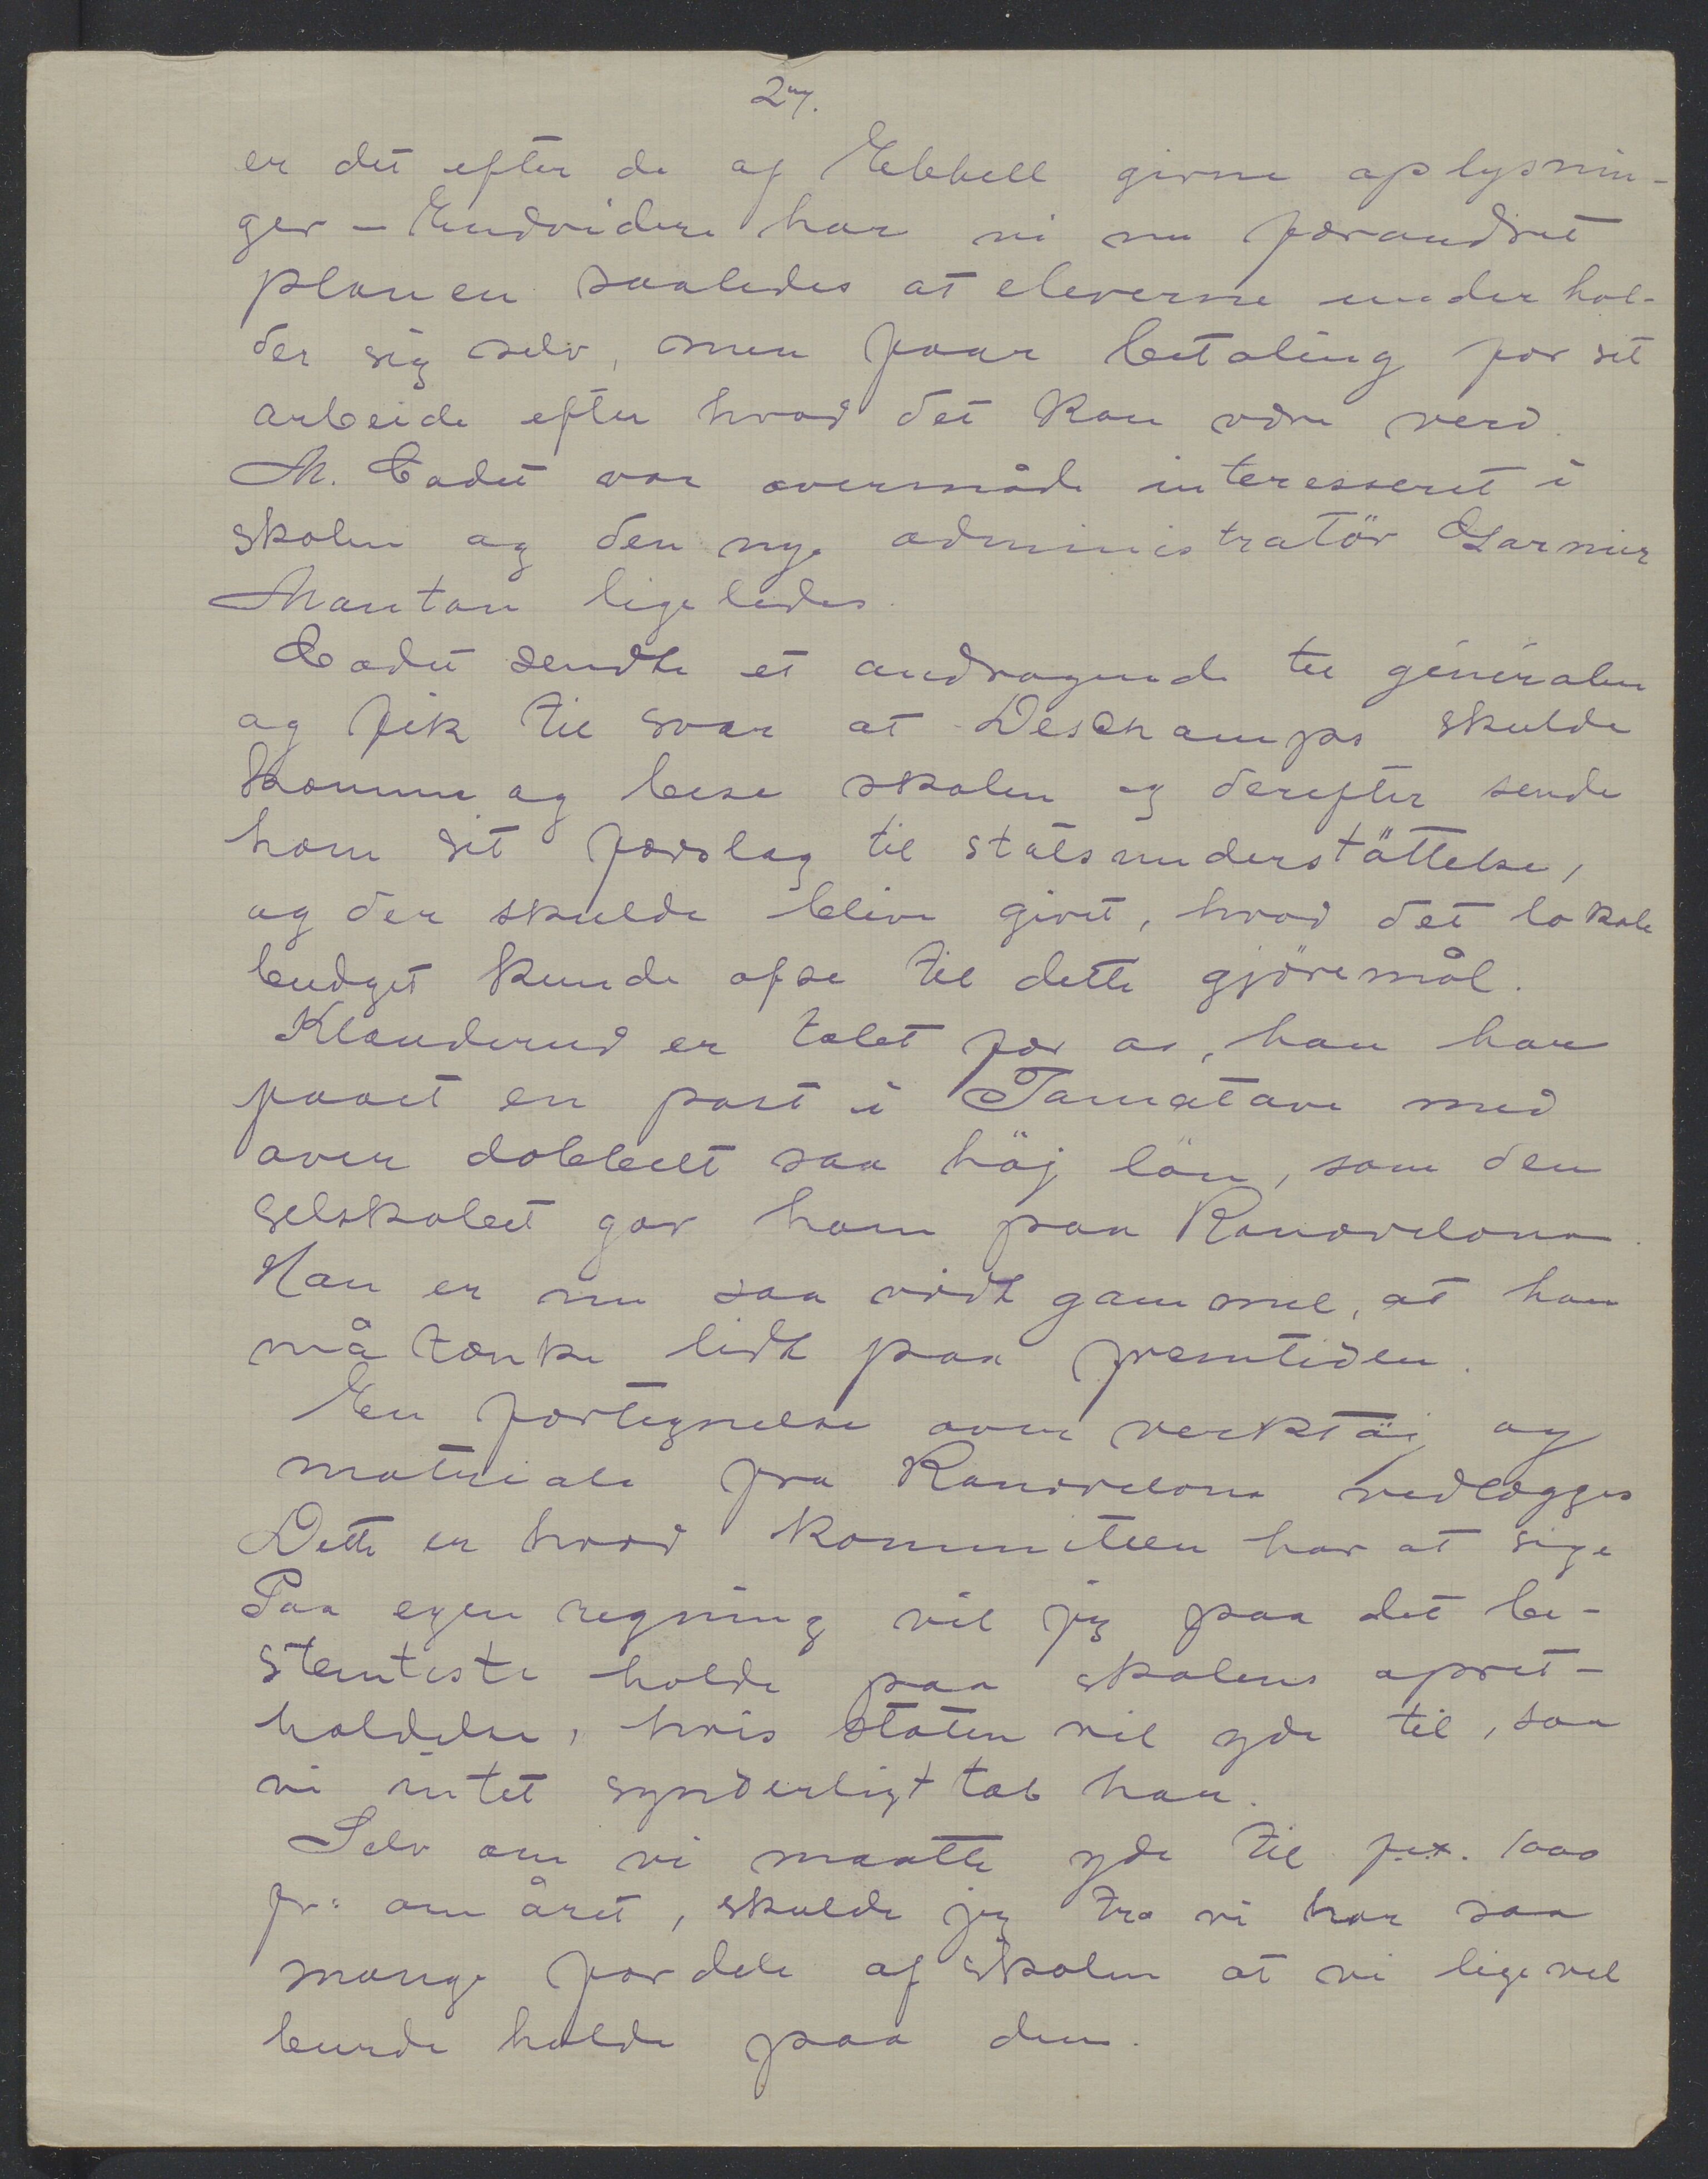 27.
er det efter de af Ebbell givne oplysnin-
ger – Endvidere har vi nu forandret
planen saaledes at eleverne underhol-
der sig selv, men faar betaling for sit
arbeide efter hvad det kan være verd.
M. Cadet var overmåde interesseret i
skolen og den nye administratör Garnier
Mantou ligeledes.
Cadet sendte et andragende til généralen
og fik til svar at Deschamps skulde
komme og bese skolen og derefter sende
ham sit forslag til statsunderstöttelse,
og der skulde blive givet, hvad det lokale
budget kunde afse til dette gjöremål.
Klanderud er tabt for os, han har
faaet en post i Tamatave med
over dobbelt saa höj lön, som den
selskabet gav ham paa Ranovelona.
Han er nu saa vidt gammel, at han
må tænke lidt paa fremtiden.
En fortegnelse over verktöj og
materiale fra Ranovelona vedlægges
Dette er hvad kommiteen har at sige
Paa egen regning vil jeg paa det be-
stemteste holde paa skolens opret-
holdelse, hvis staten vil yde til, saa
vi intet synderligt tab har.
Selv om vi maatte yde til f.ex. 1000
fr: om året, skulde jeg tro vi har saa
mange fordele af skolen at vi ligevel
burde holde paa den.